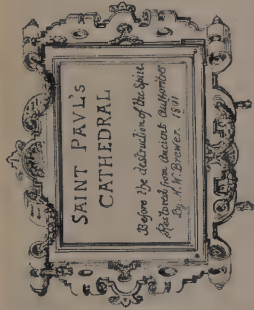 SAINT PAVL'S
CATHEDRAL
Before the destruction of the Spire.
Restored from ancient authorities
By H.W. Brewer. 1891